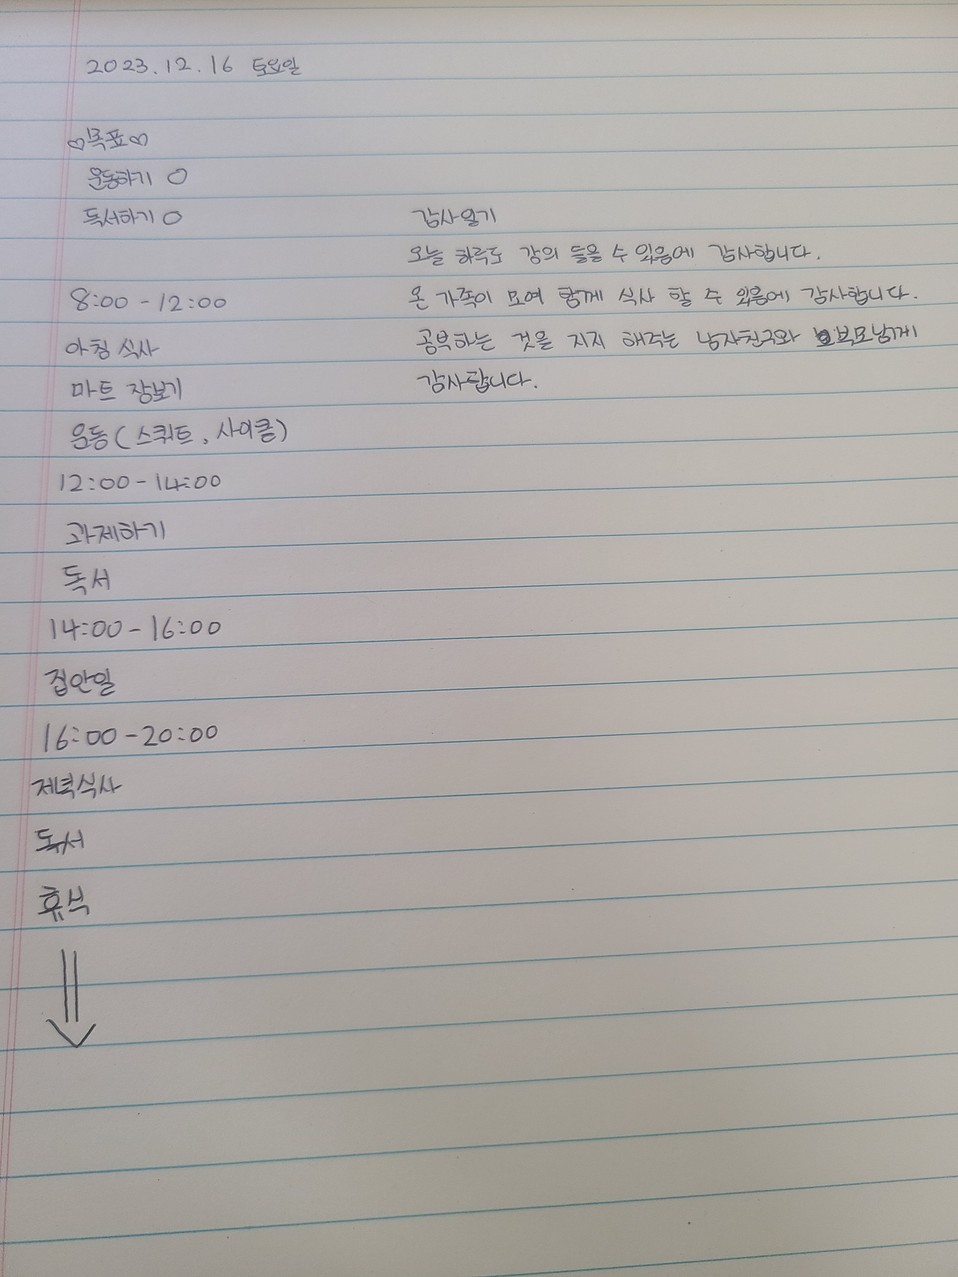 2023.12.16 토요일
♡목표♡
운동하기 O
독서하기 O
8:00 - 12:00
아침 식사
마트 장보기
운동 ( 스쿼트, 사이클)
12:00 - 14:00
과제하기
독서
14:00 - 16:00
집안일
16:00 - 20:00
저녁식사
독서
휴식
감사일기
오늘 하루도 강의 들을 수 있음에 감사합니다.
온 가족이 모여 함께 식사 할 수 있음에 감사합니다.
공부하는 것을 지지 해주는 남자친구와 부모님께
감사합니다.